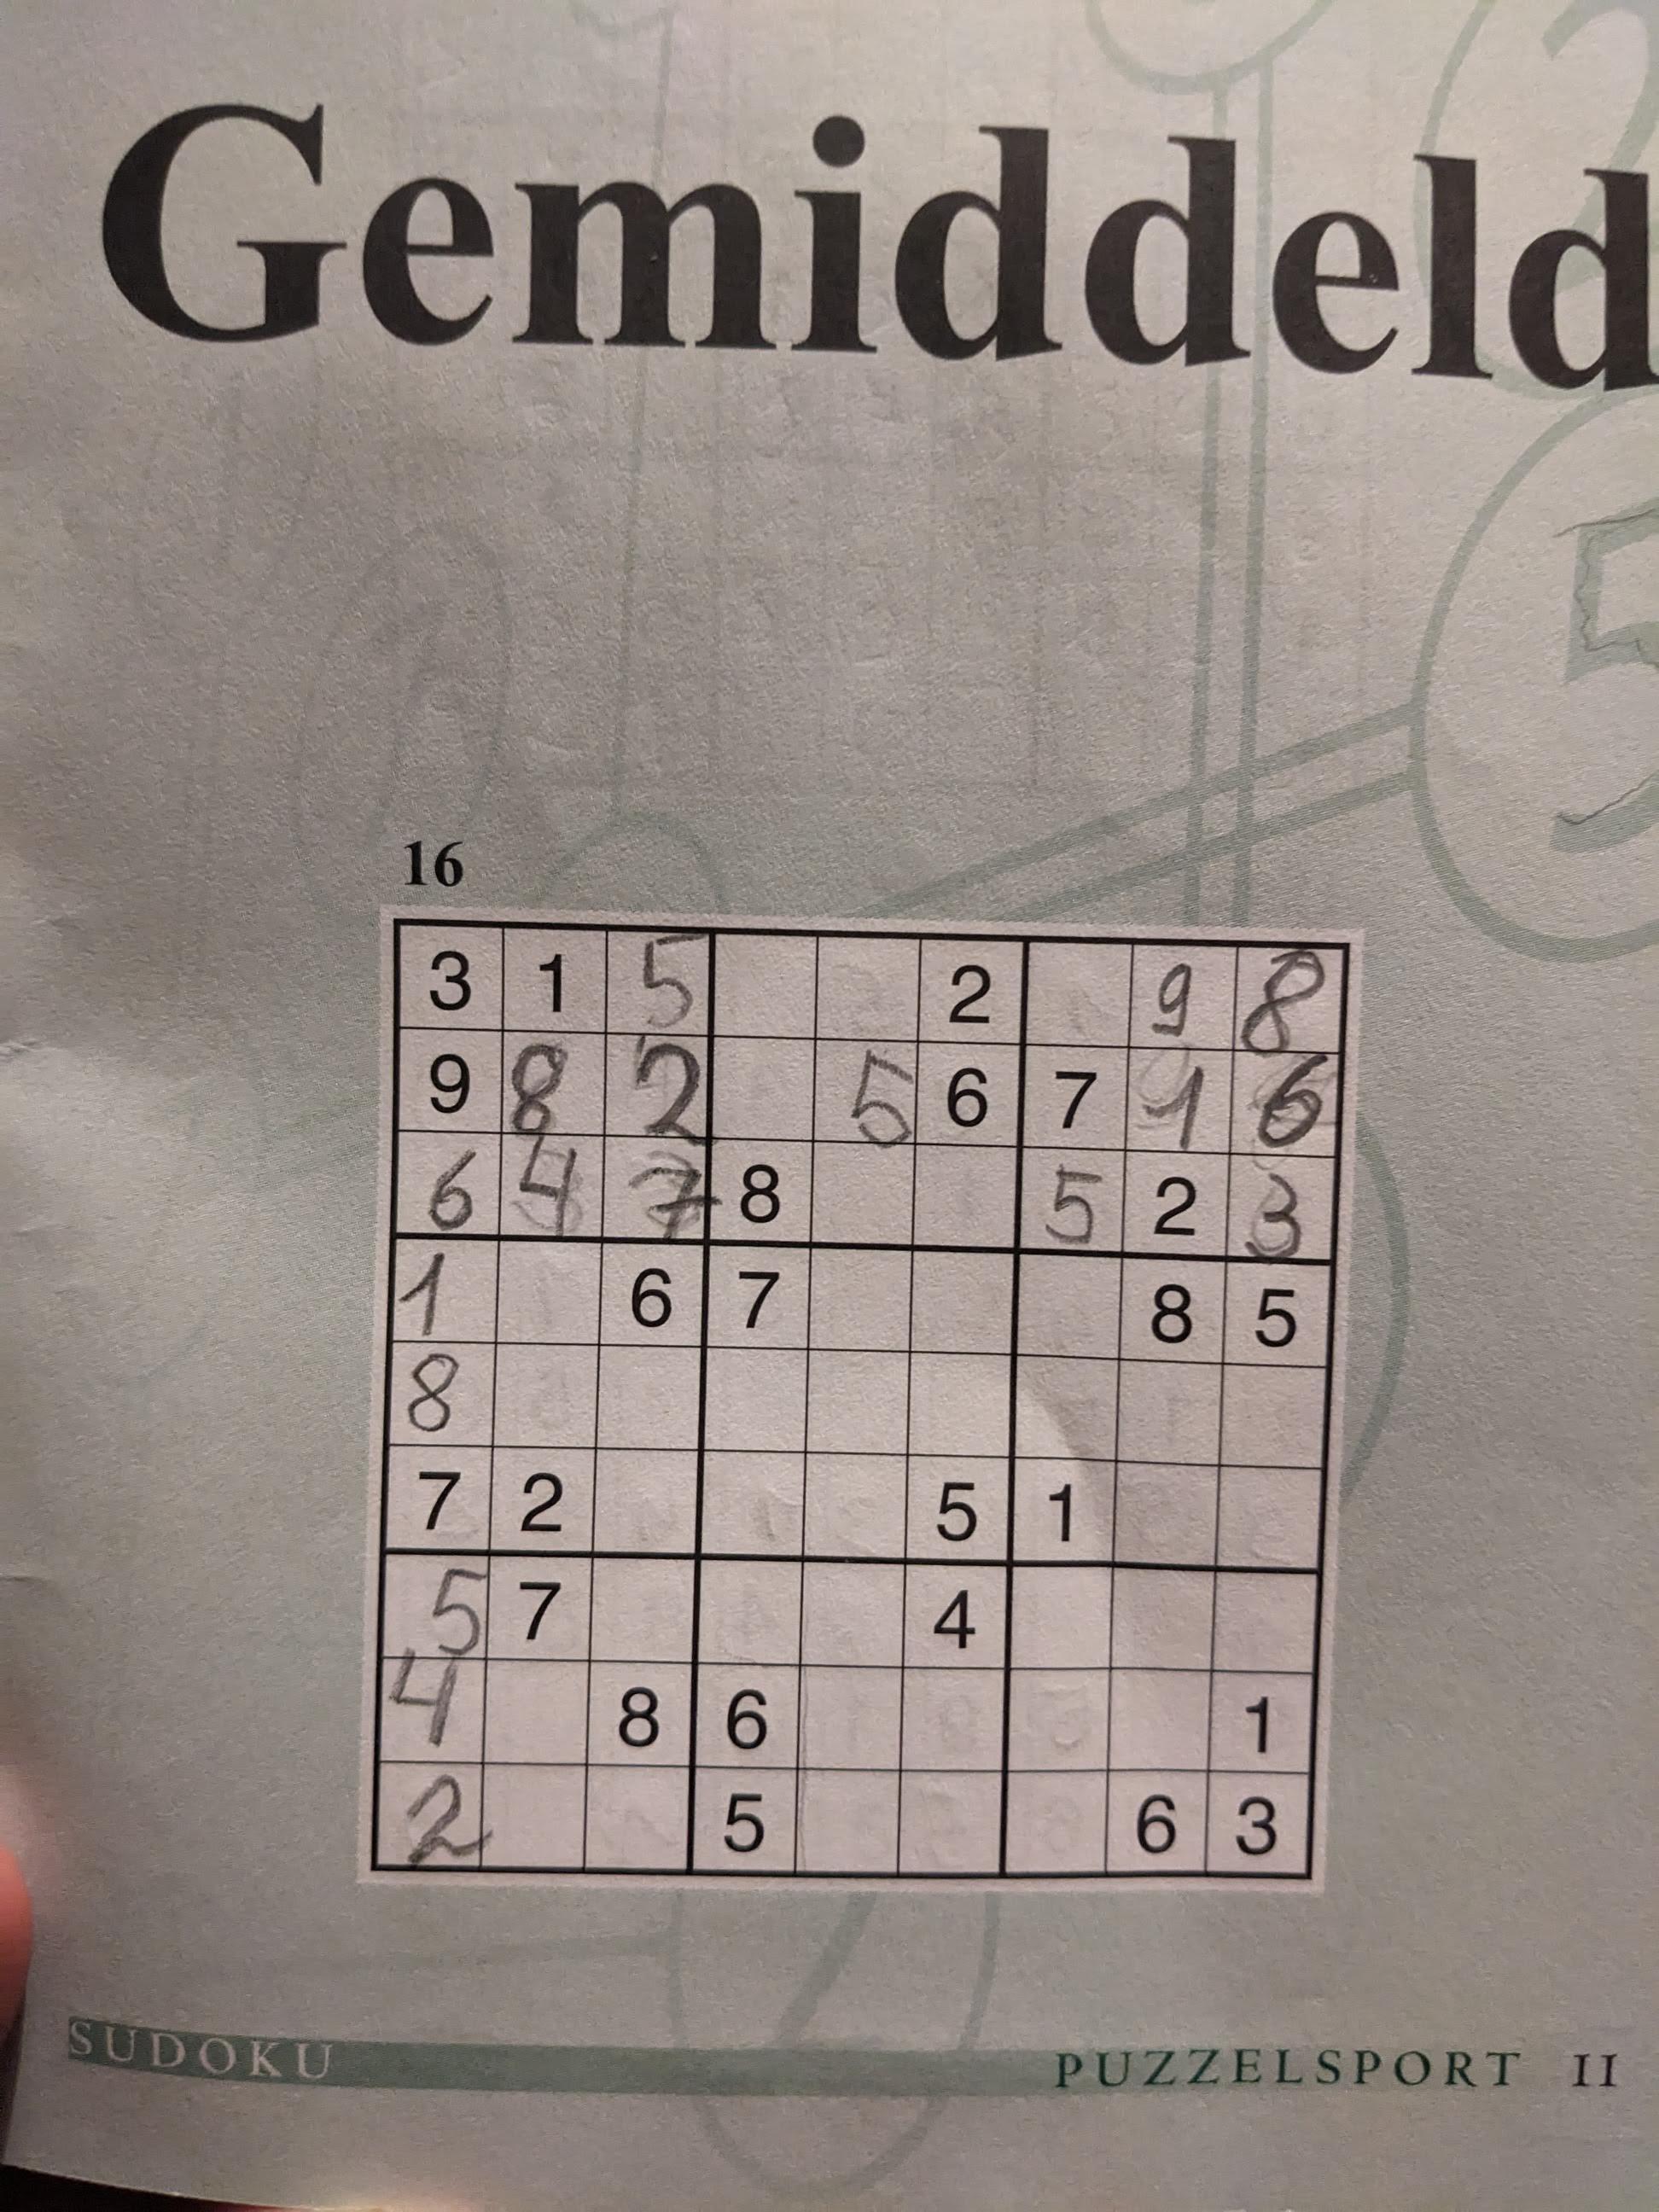 Gemiddeld
16
3 1 5 2 9 8
9 8 2 5 6 7 1 6
6 4 7 8 5 2 3
1 6 7 8 5
8
7 2 5 1
5 7 4
4 8 6 1
2 5 6 3
SUDOKU PUZZELSPORT II